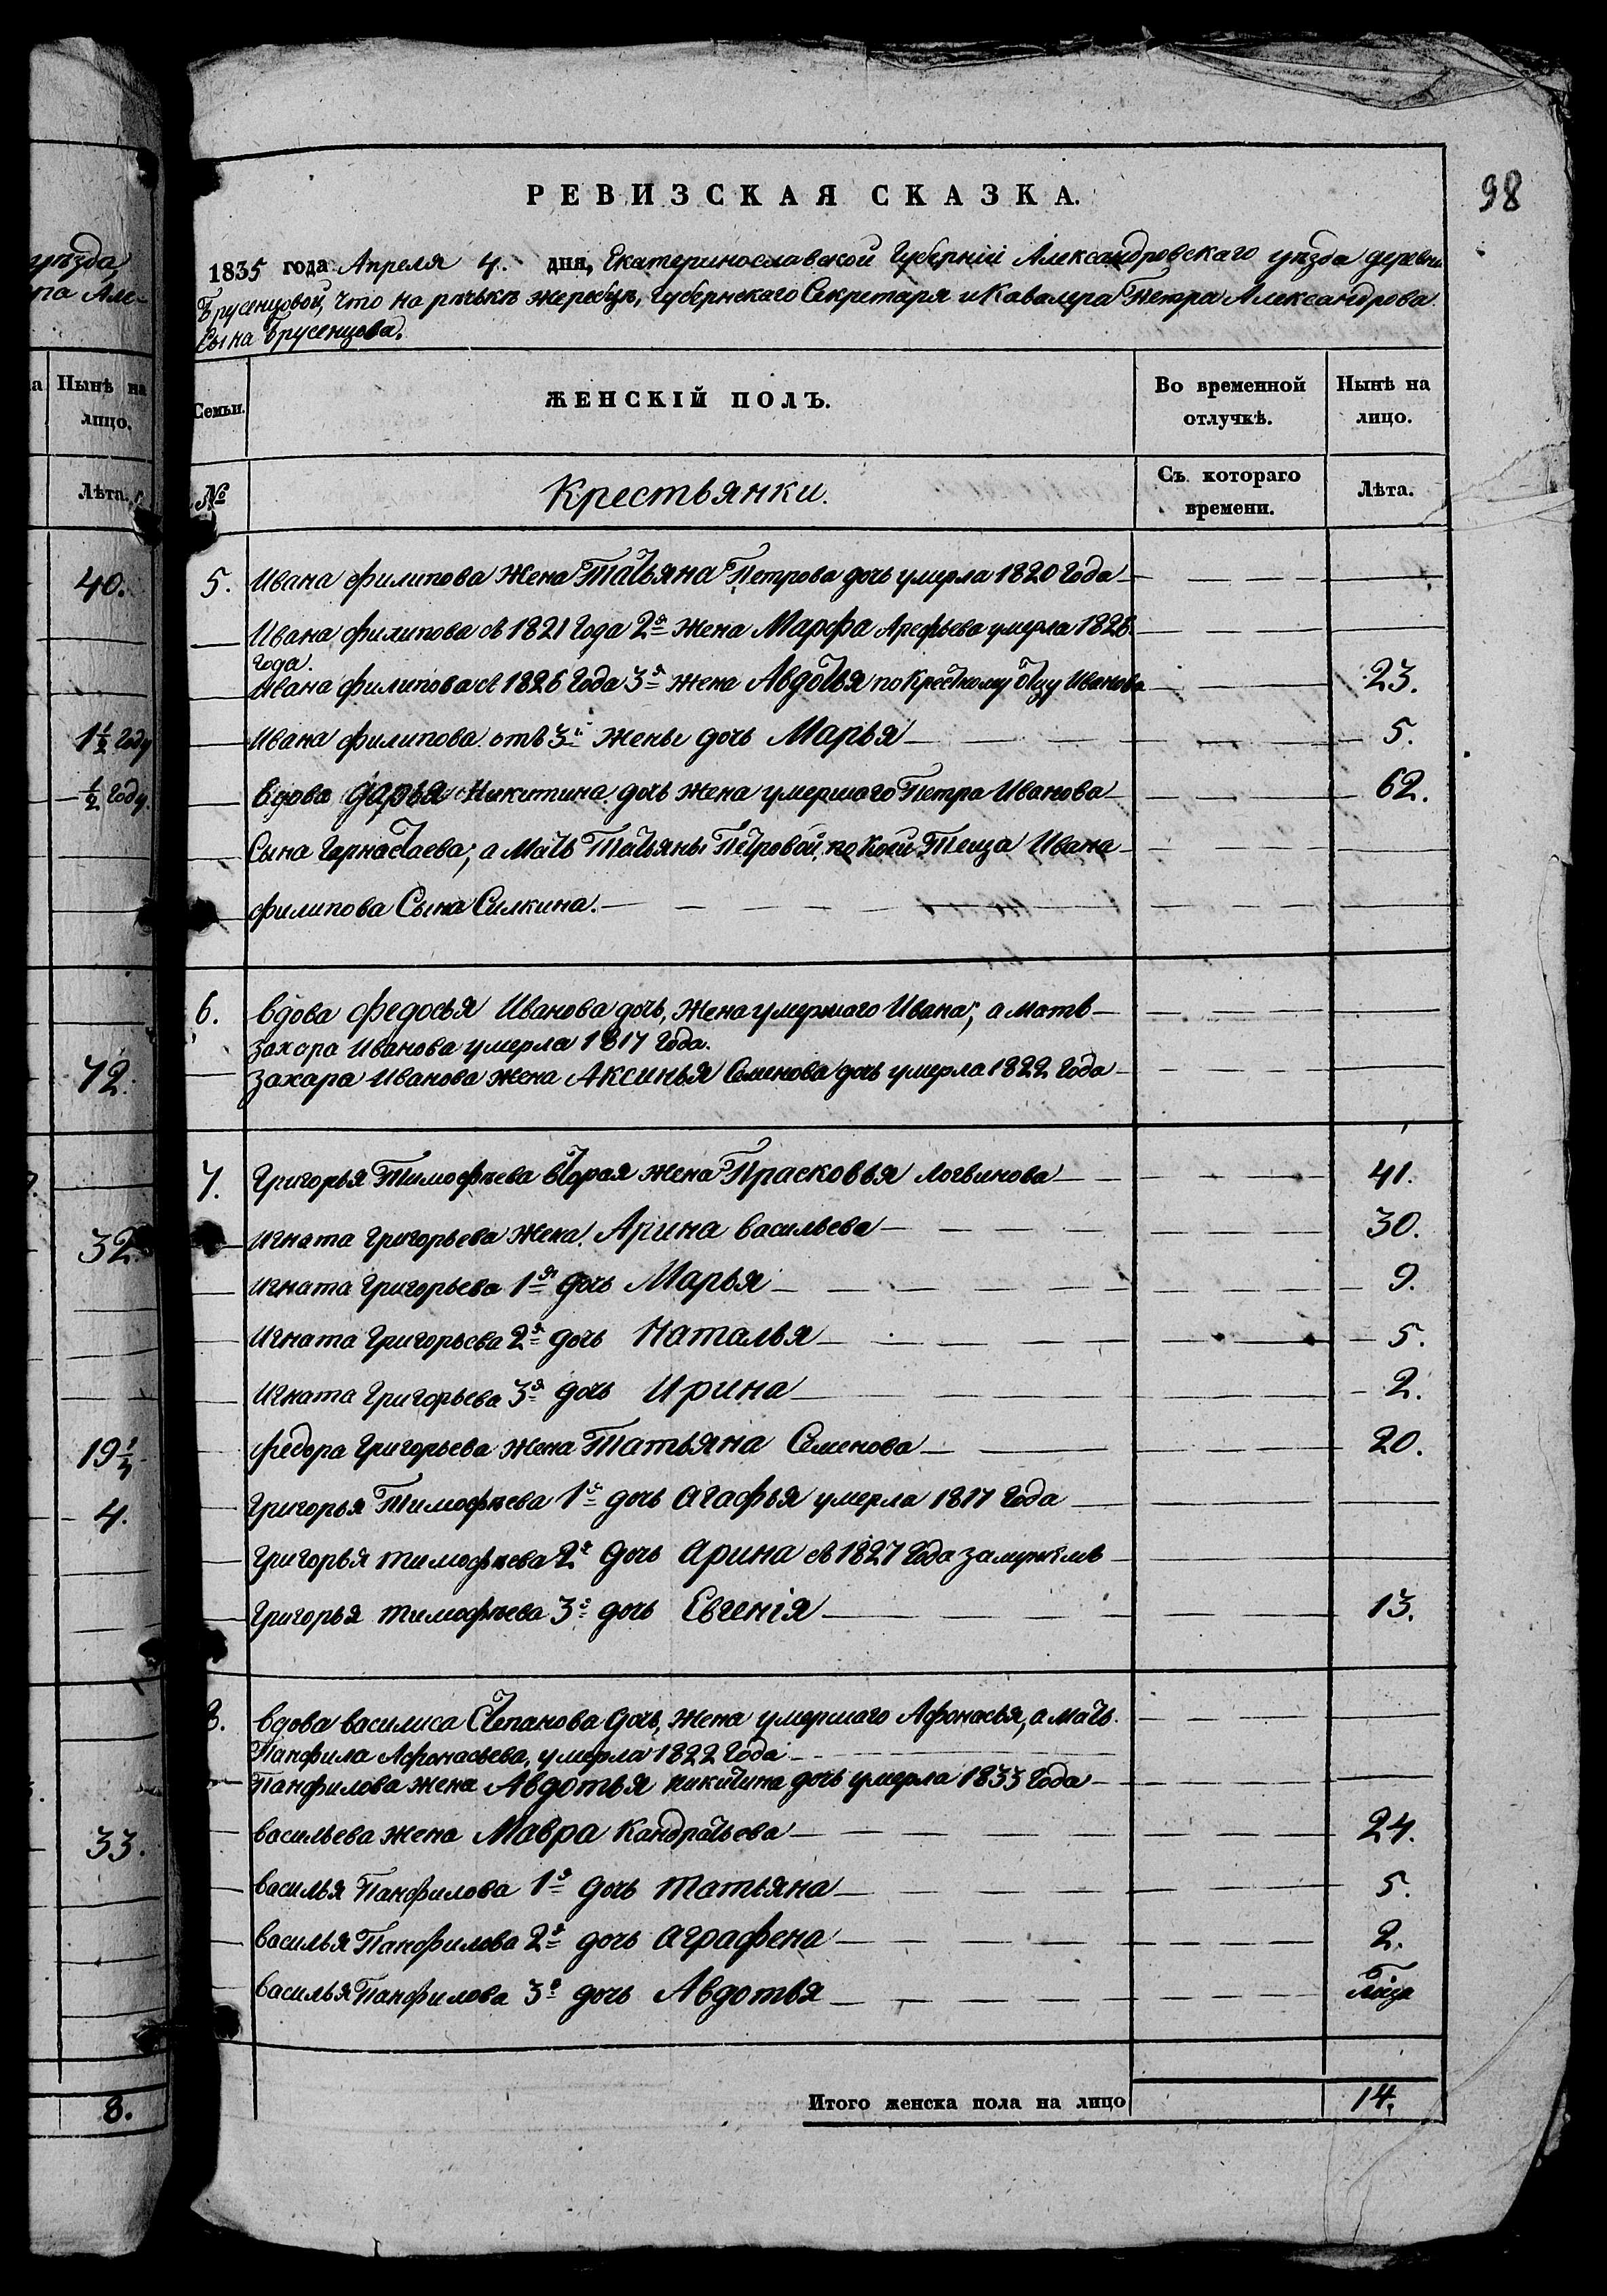 уѣзда
Але-
98
РЕВИЗСКАЯ СКАЗКА.
1835 года Апреля 4. дня, Екатеринославской Губерніи Александровскаго уѣзда деревни
Брусенцовой, что на рѣчькѣ жеребцѣ, Губернскаго Секретаря и Кавалера Петра Александрова
Сына Брусенцова.
Нынѣ на лицо.
Семьи.
ЖЕНСКІЙ ПОЛЪ.
Во временной отлучкѣ.
Нынѣ на лицо.
Лѣта.
№
Крестьянки.
Съ котораго времени.
Лѣта.
40.
5. Ивана филипова жена Татьяна Петрова дочь умерла 1820 года
Ивана филипова съ 1821 года 2я жена Марфа Арефьева умерла 1826
года.
Ивана филипова съ 1826 года 3я жена Авдотья по Крестному отцу Иванова 23.
1½ году
Ивана филипова отъ 3й жены дочь Марья 5.
½ году.
вдова дарья Никитина дочь жена умершаго Петра Иванова 62.
Сына Горностаева; а мать Татьяны Петровой, по коей Теща Ивана
филипова Сына Силкина.
6. вдова федосья Иванова дочь, жена умершаго Ивана; а мать
захара Иванова умерла 1817 года.
72.
захара Иванова жена Аксинья Семенова дочь умерла 1822 года
7. Григорья Тимофѣева вторая жена Прасковья Логвинова 41.
32.
игната Григорьева жена Арина васильева 30.
игната Григорьева 1я дочь Марья 9.
игната Григорьева 2я дочь Наталья 5.
игната Григорьева 3я дочь Ирина 2.
19¼
федора Григорьева жена Татьяна Семенова 20.
4.
Григорья Тимофѣева 1я дочь агафья умерла 1817 года
Григорья тимофѣева 2я дочь арина съ 1827 года замужемъ
Григорья тимофѣева 3я дочь Евгенія 13.
8. вдова василиса Степанова дочь, жена умершаго Афонасья, а мать
Панфила Афонасьева, умерла 1822 года
Панфилова жена Авдотья никитина дочь умерла 1833 года
33.
васильева жена Мавра Кандратьева 24.
василья Панфилова 1я дочь татьяна 5.
василья Панфилова 2я дочь аграфена 2.
василья Панфилова 3я дочь Авдотья
8.
Итого женска пола на лицо 14.